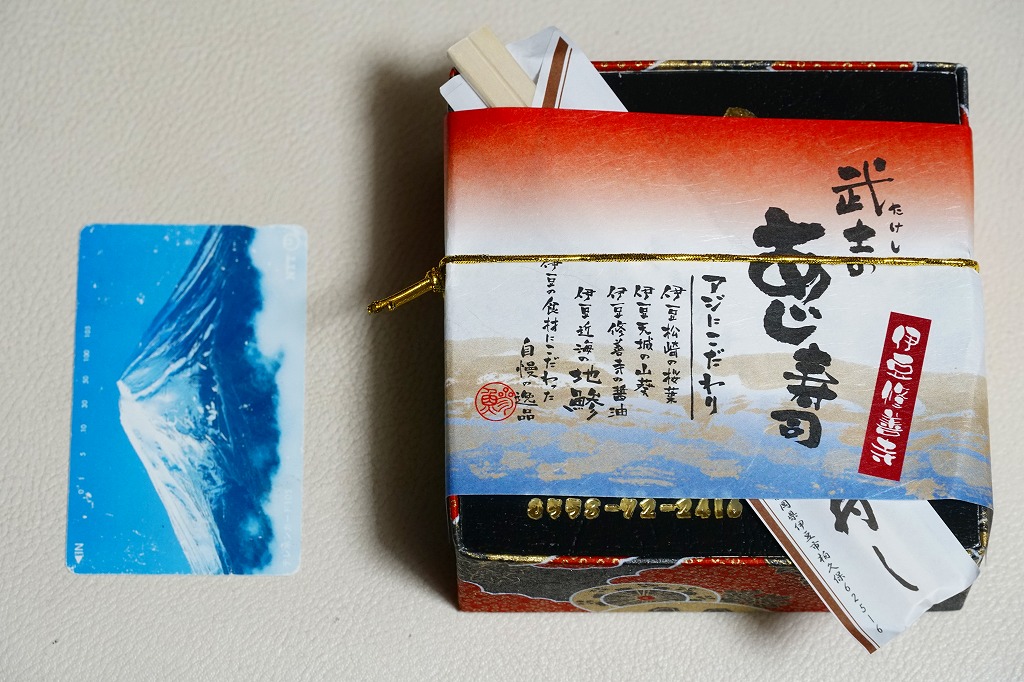 武士のあじ寿司
たけし
伊豆修善寺
アジにこだわり
伊豆松崎の桜葉
伊豆天城の山葵
伊豆修善寺の醤油
伊豆近海の地鯵
伊豆の食材にこだわった
自慢の逸品
0558-72-2416
岡県伊豆市柏久保625-16
し
IN
0 1 5 10 30 50 100 105